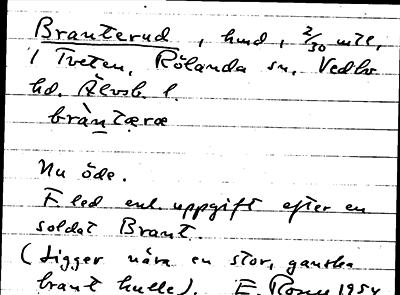 Branterud, hmd, 2/30 mtl,
i Tveten, Rölanda sn, Vedbo
hd. Älvsb. l.
bràntæræ
Nu öde.
F led enl. uppgift efter en
soldat Brant.
(Ligger nära en stor, ganska
brant kulle). E. 1954